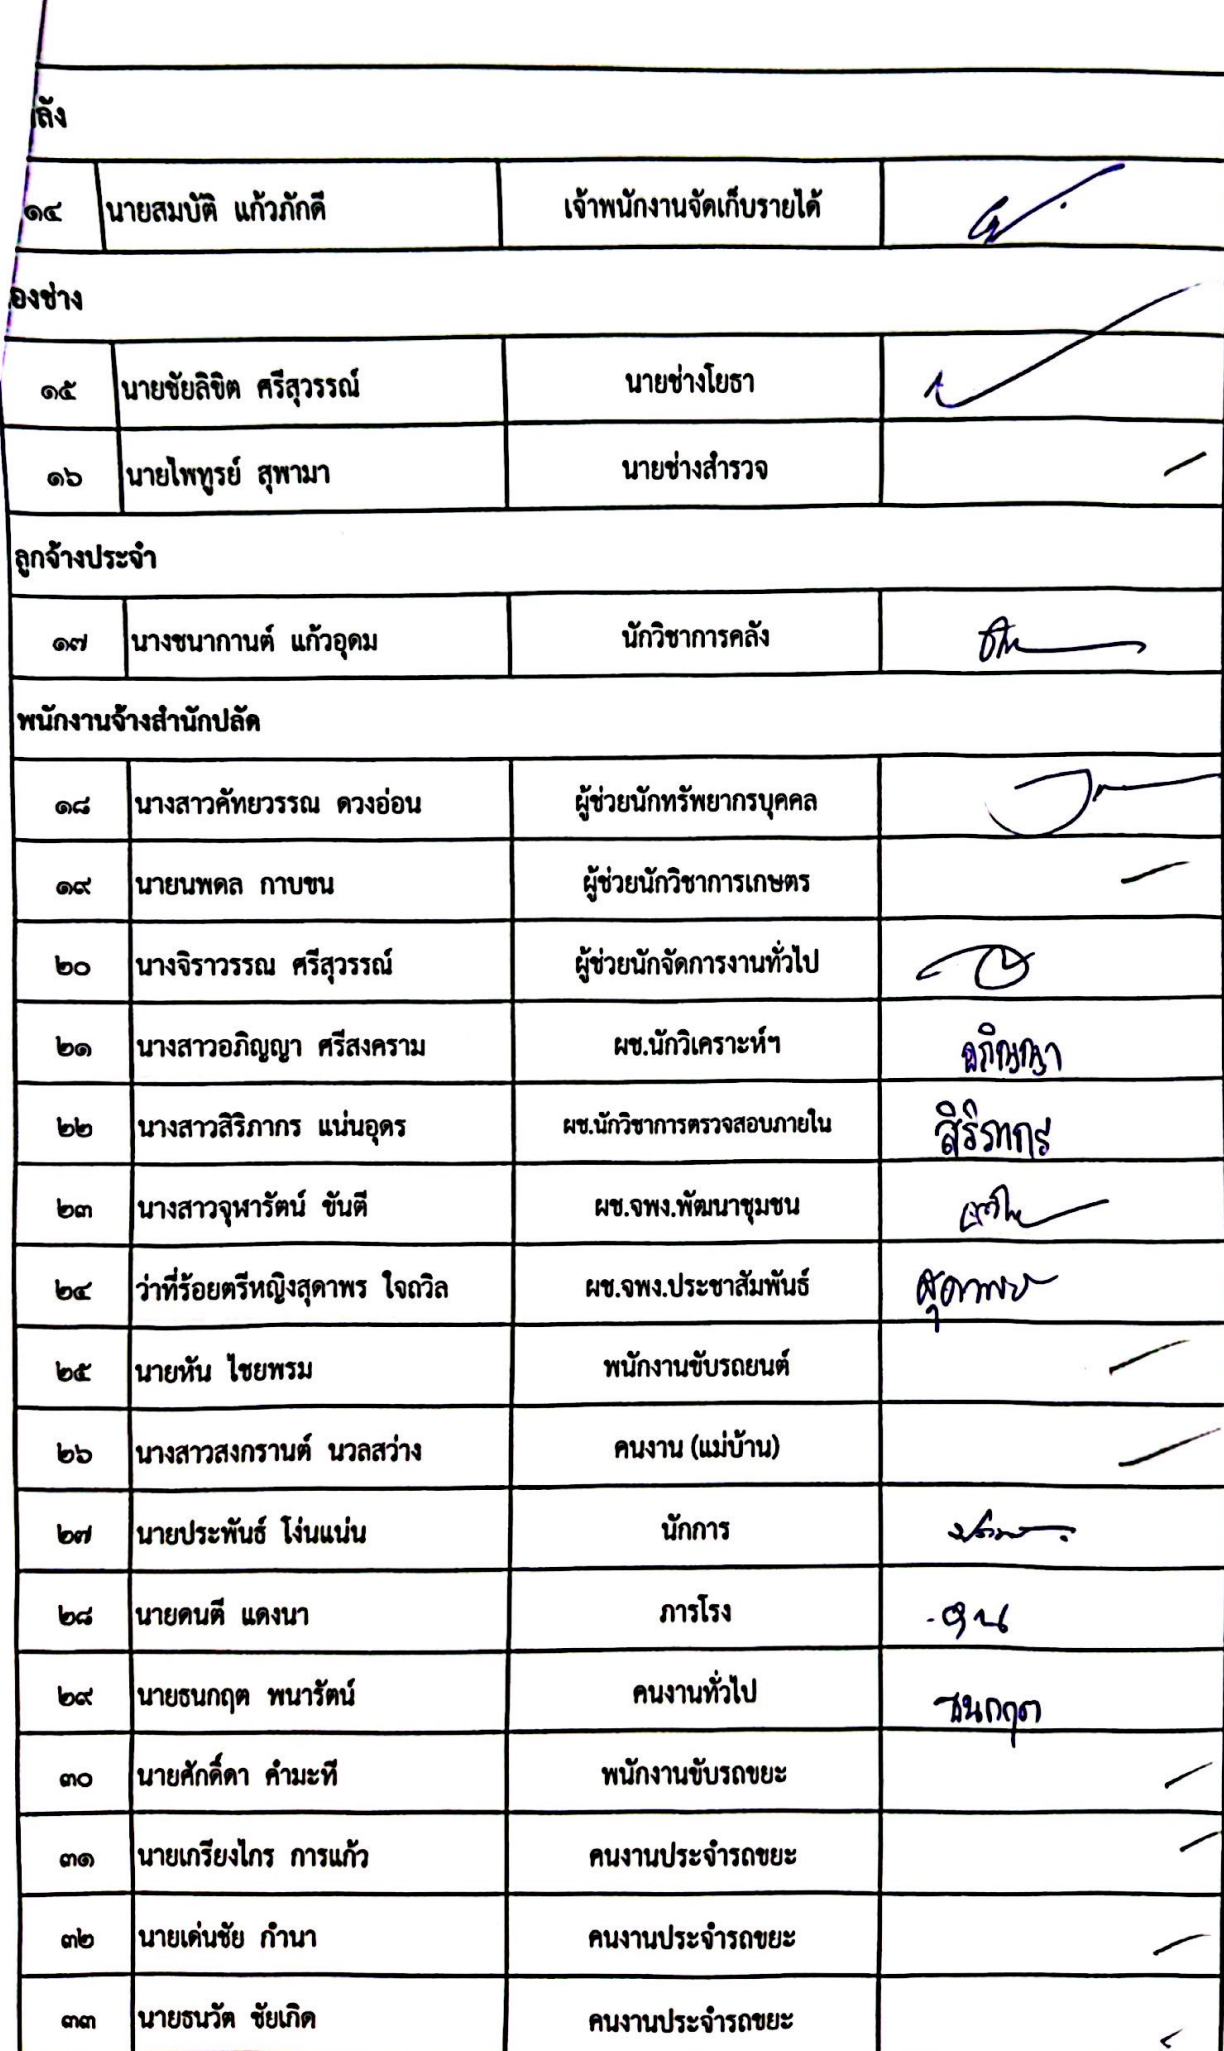 ลัง
๑๔ นายสมบัติ แก้วภักดี เจ้าพนักงานจัดเก็บรายได้
องช่าง
๑๕ นายชัยลิขิต ศรีสุวรรณ์ นายช่างโยธา
๑๖ นายไพฑูรย์ สุพามา นายช่างสำรวจ
ลูกจ้างประจำ
๑๗ นางชนากานต์ แก้วอุดม นักวิชาการคลัง
พนักงานจ้างสำนักปลัด
๑๘ นางสาวคัทยวรรณ ดวงอ่อน ผู้ช่วยนักทรัพยากรบุคคล
๑๙ นายนพดล กาบขน ผู้ช่วยนักวิชาการเกษตร
๒๐ นางจิราวรรณ ศรีสุวรรณ์ ผู้ช่วยนักจัดการงานทั่วไป
๒๑ นางสาวอภิญญา ศรีสงคราม ผช.นักวิเคราะห์ฯ อภิญญา
๒๒ นางสาวสิริภากร แน่นอุดร ผช.นักวิชาการตรวจสอบภายใน สิริภากร
๒๓ นางสาวจุฬารัตน์ ขันตี ผช.จพง.พัฒนาชุมชน
๒๔ ว่าที่ร้อยตรีหญิงสุดาพร ใจถวิล ผช.จพง.ประชาสัมพันธ์ สุดาพร
๒๕ นายหัน ไชยพรม พนักงานขับรถยนต์
๒๖ นางสาวสงกรานต์ นวลสว่าง คนงาน (แม่บ้าน)
๒๗ นายประพันธ์ โง่นแน่น นักการ
๒๘ นายดนตี แดงนา ภารโรง
๒๙ นายธนกฤต พนารัตน์ คนงานทั่วไป ธนกฤต
๓๐ นายศักดิ์ดา คำมะที พนักงานขับรถขยะ
๓๑ นายเกรียงไกร การแก้ว คนงานประจำรถขยะ
๓๒ นายเด่นชัย กำนา คนงานประจำรถขยะ
๓๓ นายธนวัต ชัยเกิด คนงานประจำรถขยะ